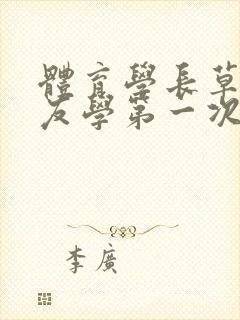 體育學長草
友學第一次
李廣